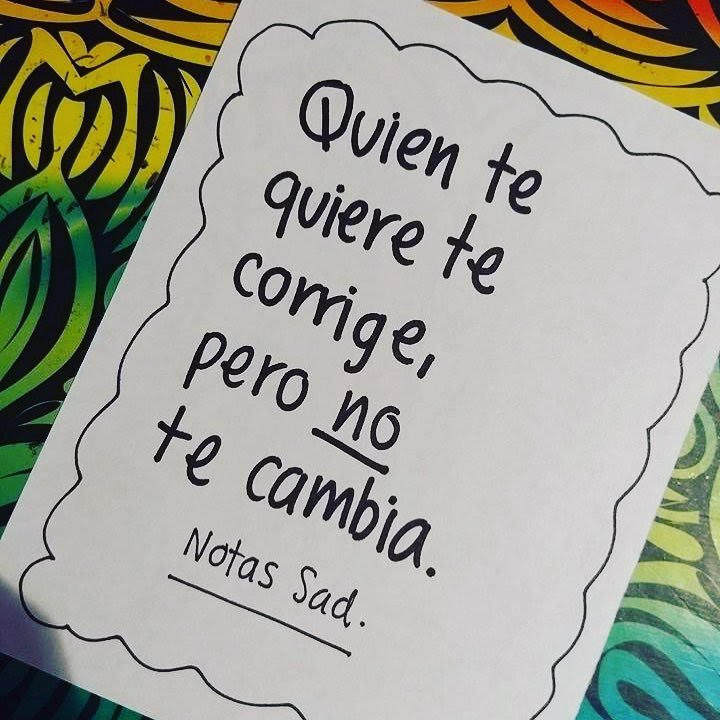 Quien te
quiere te
corrige,
pero no
te cambia.
Notas Sad.